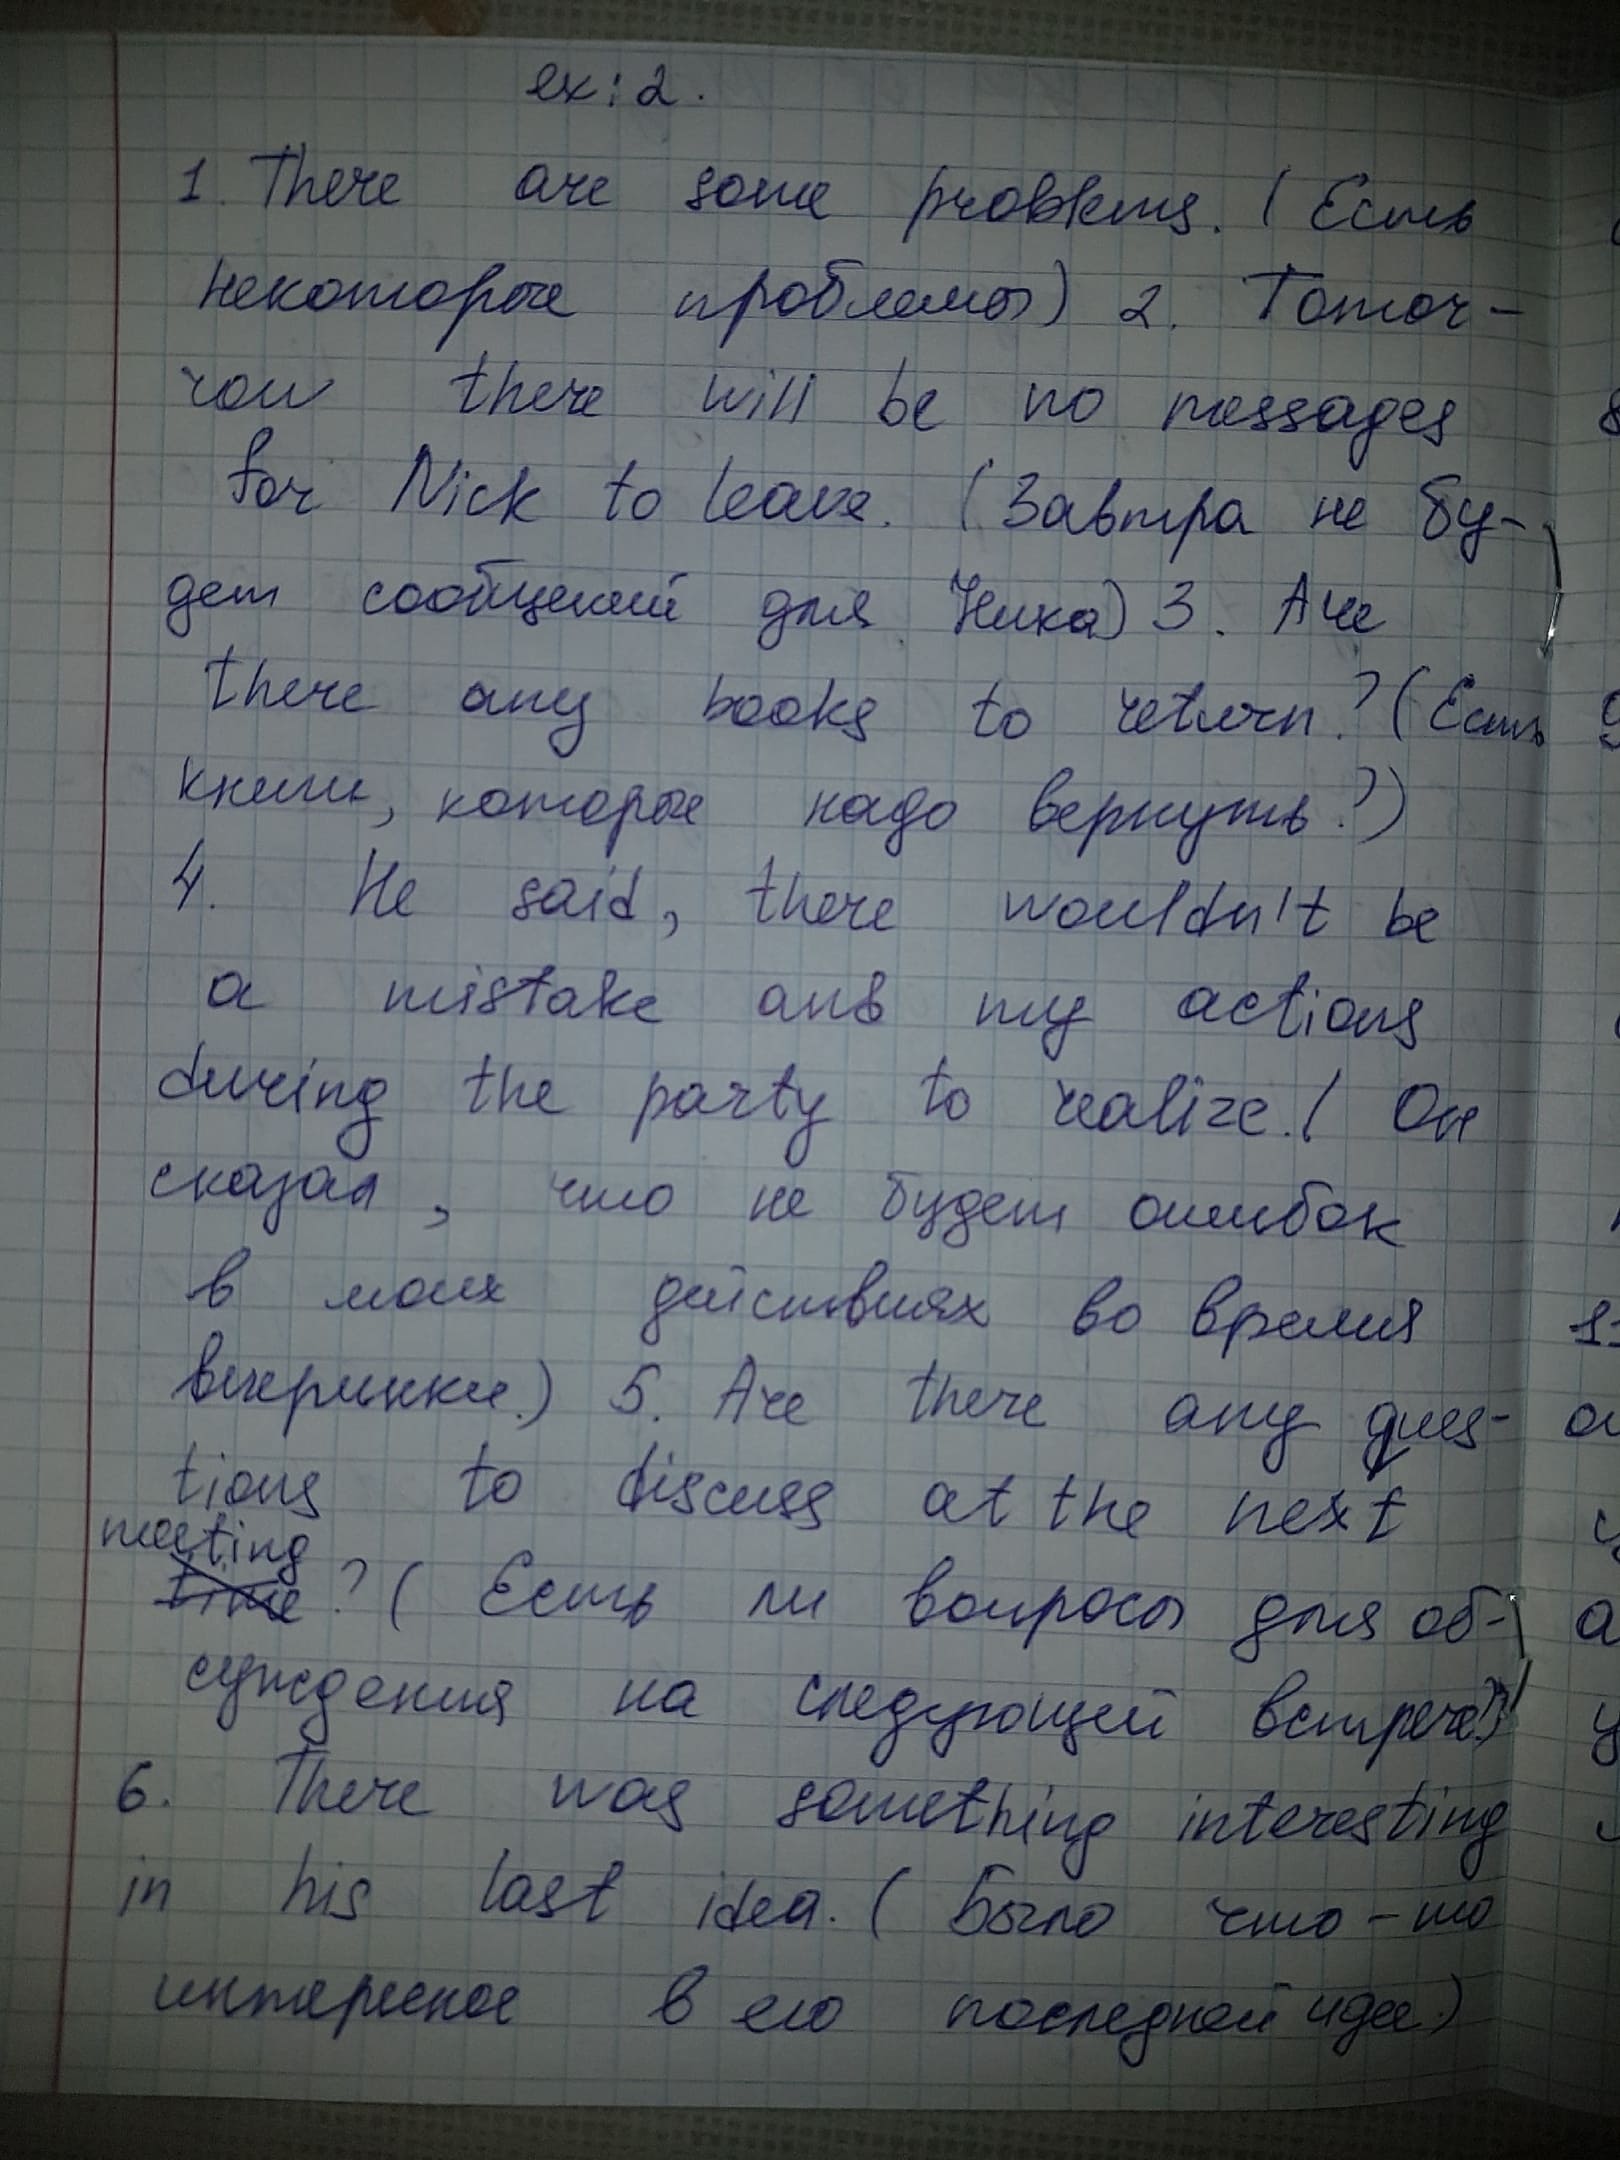 ex: 2.
1. There are some problems. (Есть
некоторые проблемы) 2. Tomor-
row there will be no messages
for Nick to leave. (Завтра не бу-
дет сообщений для Ника) 3. Are
there any books to return? (Есть
книги, которые надо вернуть?)
4. He said, there wouldn't be
a mistake anв my actions
during the party to realize. (Он
сказал, что не будет ошибок
в моих действиях во время
вечеринки.) 5. Are there any ques-
tions to discuss at the next
meeting
time ? (Есть ли вопросы для об-
суждения на следующей встрече?)
6. There was something interesting
in his last idea. (Было что-то
интересное в его последней идее.)